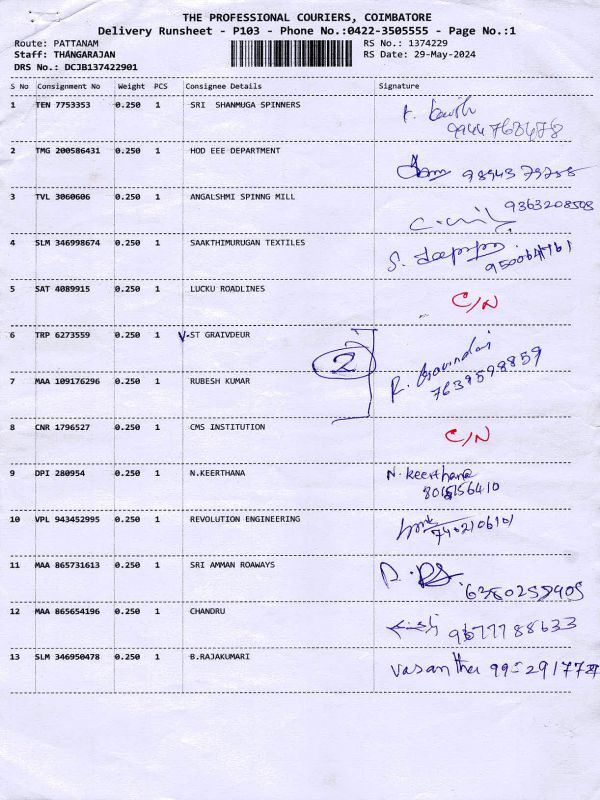 THE PROFESSIONAL COURIERS, COIMBATORE
Delivery Runsheet - P103 - Phone No.:0422-3505555 - Page No.:1
Route: PATTANAM RS No.: 1374229
Staff: THANGARAJAN RS Date: 29-May-2024
DRS No.: DCJB137422901
S No Consignment No Weight PCS Consignee Details Signature
1 TEN 7753353 0.250 1 SRI SHANMUGA SPINNERS
9944768478
2 TMG 200586431 0.250 1 HOD EEE DEPARTMENT
3 TVL 3060606 0.250 1 ANGALSHMI SPINNG MILL 9363208508
4 SLM 346998674 0.250 1 SAAKTHIMURUGAN TEXTILES
5 SAT 4089915 0.250 1 LUCKU ROADLINES C/N
6 TRP 6273559 0.250 1 V-ST GRAIVDEUR
2 R. Govindai
7639598859
7 MAA 109176296 0.250 1 RUBESH KUMAR
8 CNR 1796527 0.250 1 CMS INSTITUTION C/N
9 DPI 280954 0.250 1 N.KEERTHANA N. Keerthana
10 VPL 943452995 0.250 1 REVOLUTION ENGINEERING
7402106101
11 MAA 865731613 0.250 1 SRI AMMAN ROAWAYS
12 MAA 865654196 0.250 1 CHANDRU
9677788633
13 SLM 346950478 0.250 1 B.RAJAKUMARI
vasantha